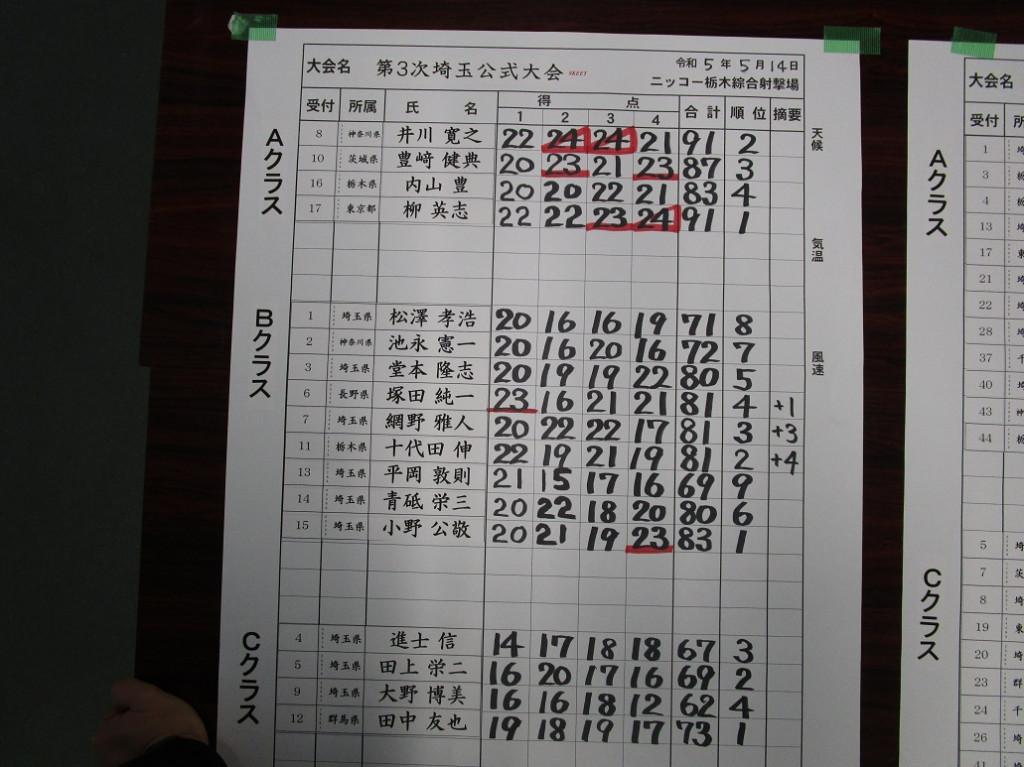 大会名 第3次埼玉公式大会 SKEET 令和 5 年 5 月 14 日
ニッコー栃木綜合射撃場
受付 所属 氏 名 得 点 合計 順位 摘要
1 2 3 4
Aクラス
8 神奈川県 井川 寛之 22 24 24 21 91 2
10 茨城県 豊﨑 健典 20 23 21 23 87 3
16 栃木県 内山 豊 20 20 22 21 83 4
17 東京都 柳 英志 22 22 23 24 91 1
天候
気温
風速
Bクラス
1 埼玉県 松澤 孝浩 20 16 16 19 71 8
2 神奈川県 池永 憲一 20 16 20 16 72 7
3 埼玉県 堂本 隆志 20 19 19 22 80 5
6 長野県 塚田 純一 23 16 21 21 81 4 +1
7 埼玉県 網野 雅人 20 22 22 17 81 3 +3
11 栃木県 十代田 伸 22 19 21 19 81 2 +4
13 埼玉県 平岡 敦則 21 15 17 16 69 9
14 埼玉県 青砥 栄三 20 22 18 20 80 6
15 埼玉県 小野 公敬 20 21 19 23 83 1
Cクラス
4 埼玉県 進士 信 14 17 18 18 67 3
5 埼玉県 田上 栄二 16 20 17 16 69 2
9 埼玉県 大野 博美 16 16 18 12 62 4
12 群馬県 田中 友也 19 18 19 17 73 1
大会名
受付
Aクラス
1 埼
3
4
13 埼
17 東
21 埼
22 埼
28 埼
37 千
40 埼
43 神
44
Cクラス
5 埼
7 茨
8 埼
19 東
20 埼
23 群
24 千
26 埼
41 埼